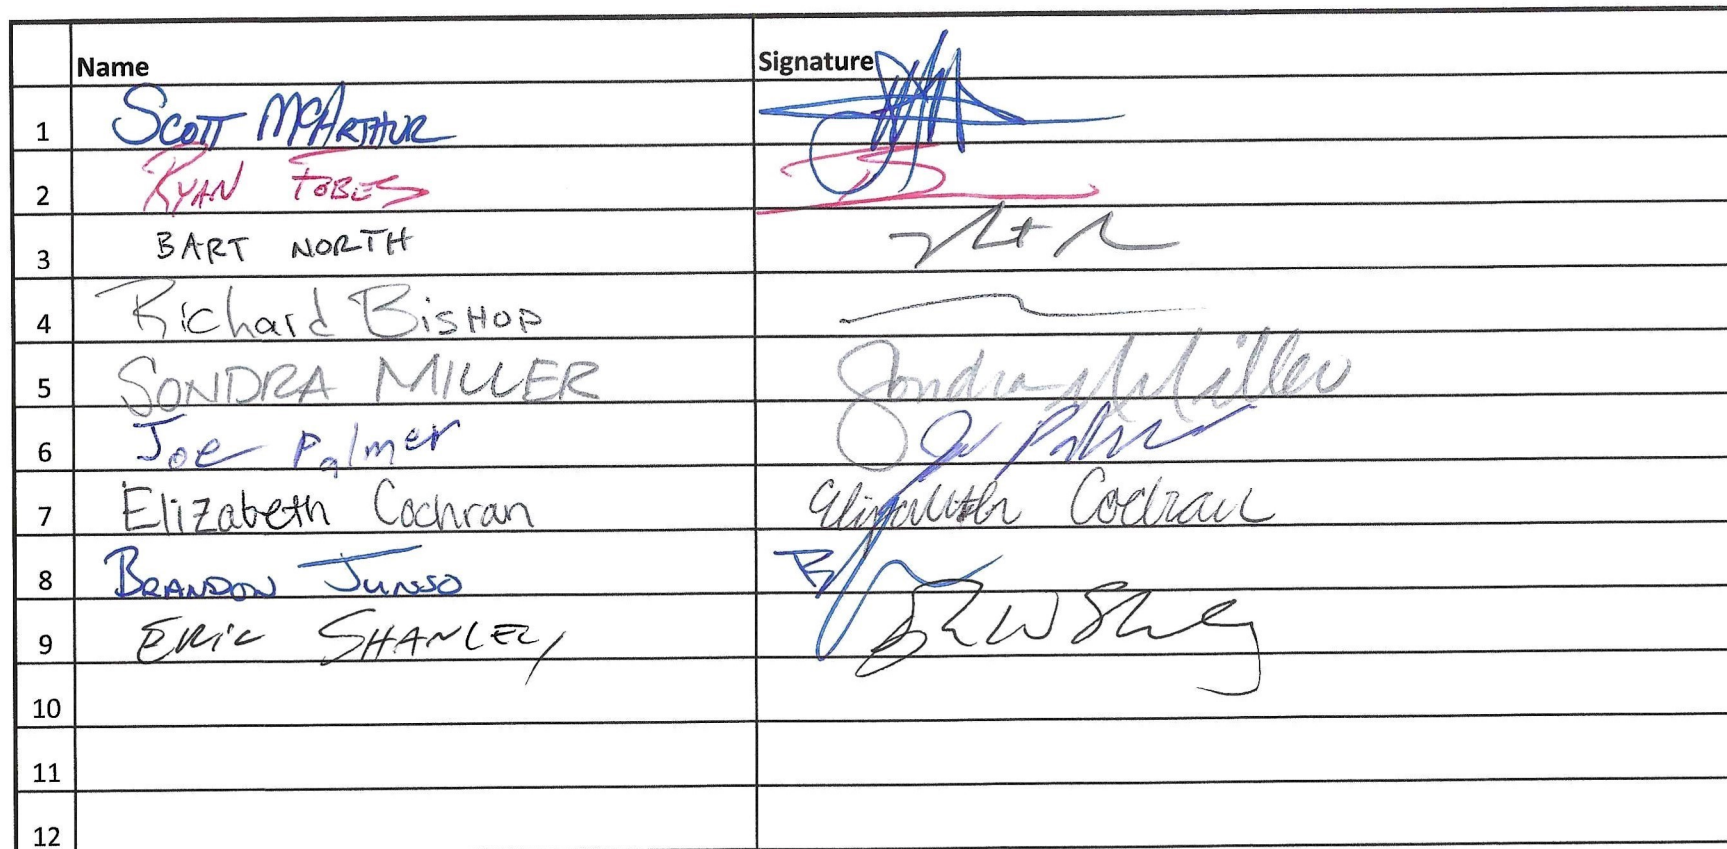 Name Signature
1 Scott McArthur
2 Ryan Fobes
3 BART NORTH
4 Richard Bishop
5 SONDRA MILLER Sondra M Miller
6 Joe Palmer Joe Palmer
7 Elizabeth Cochran Elizabeth Cochran
8 BRANDON
9 ERIC SHANLEY
10
11
12